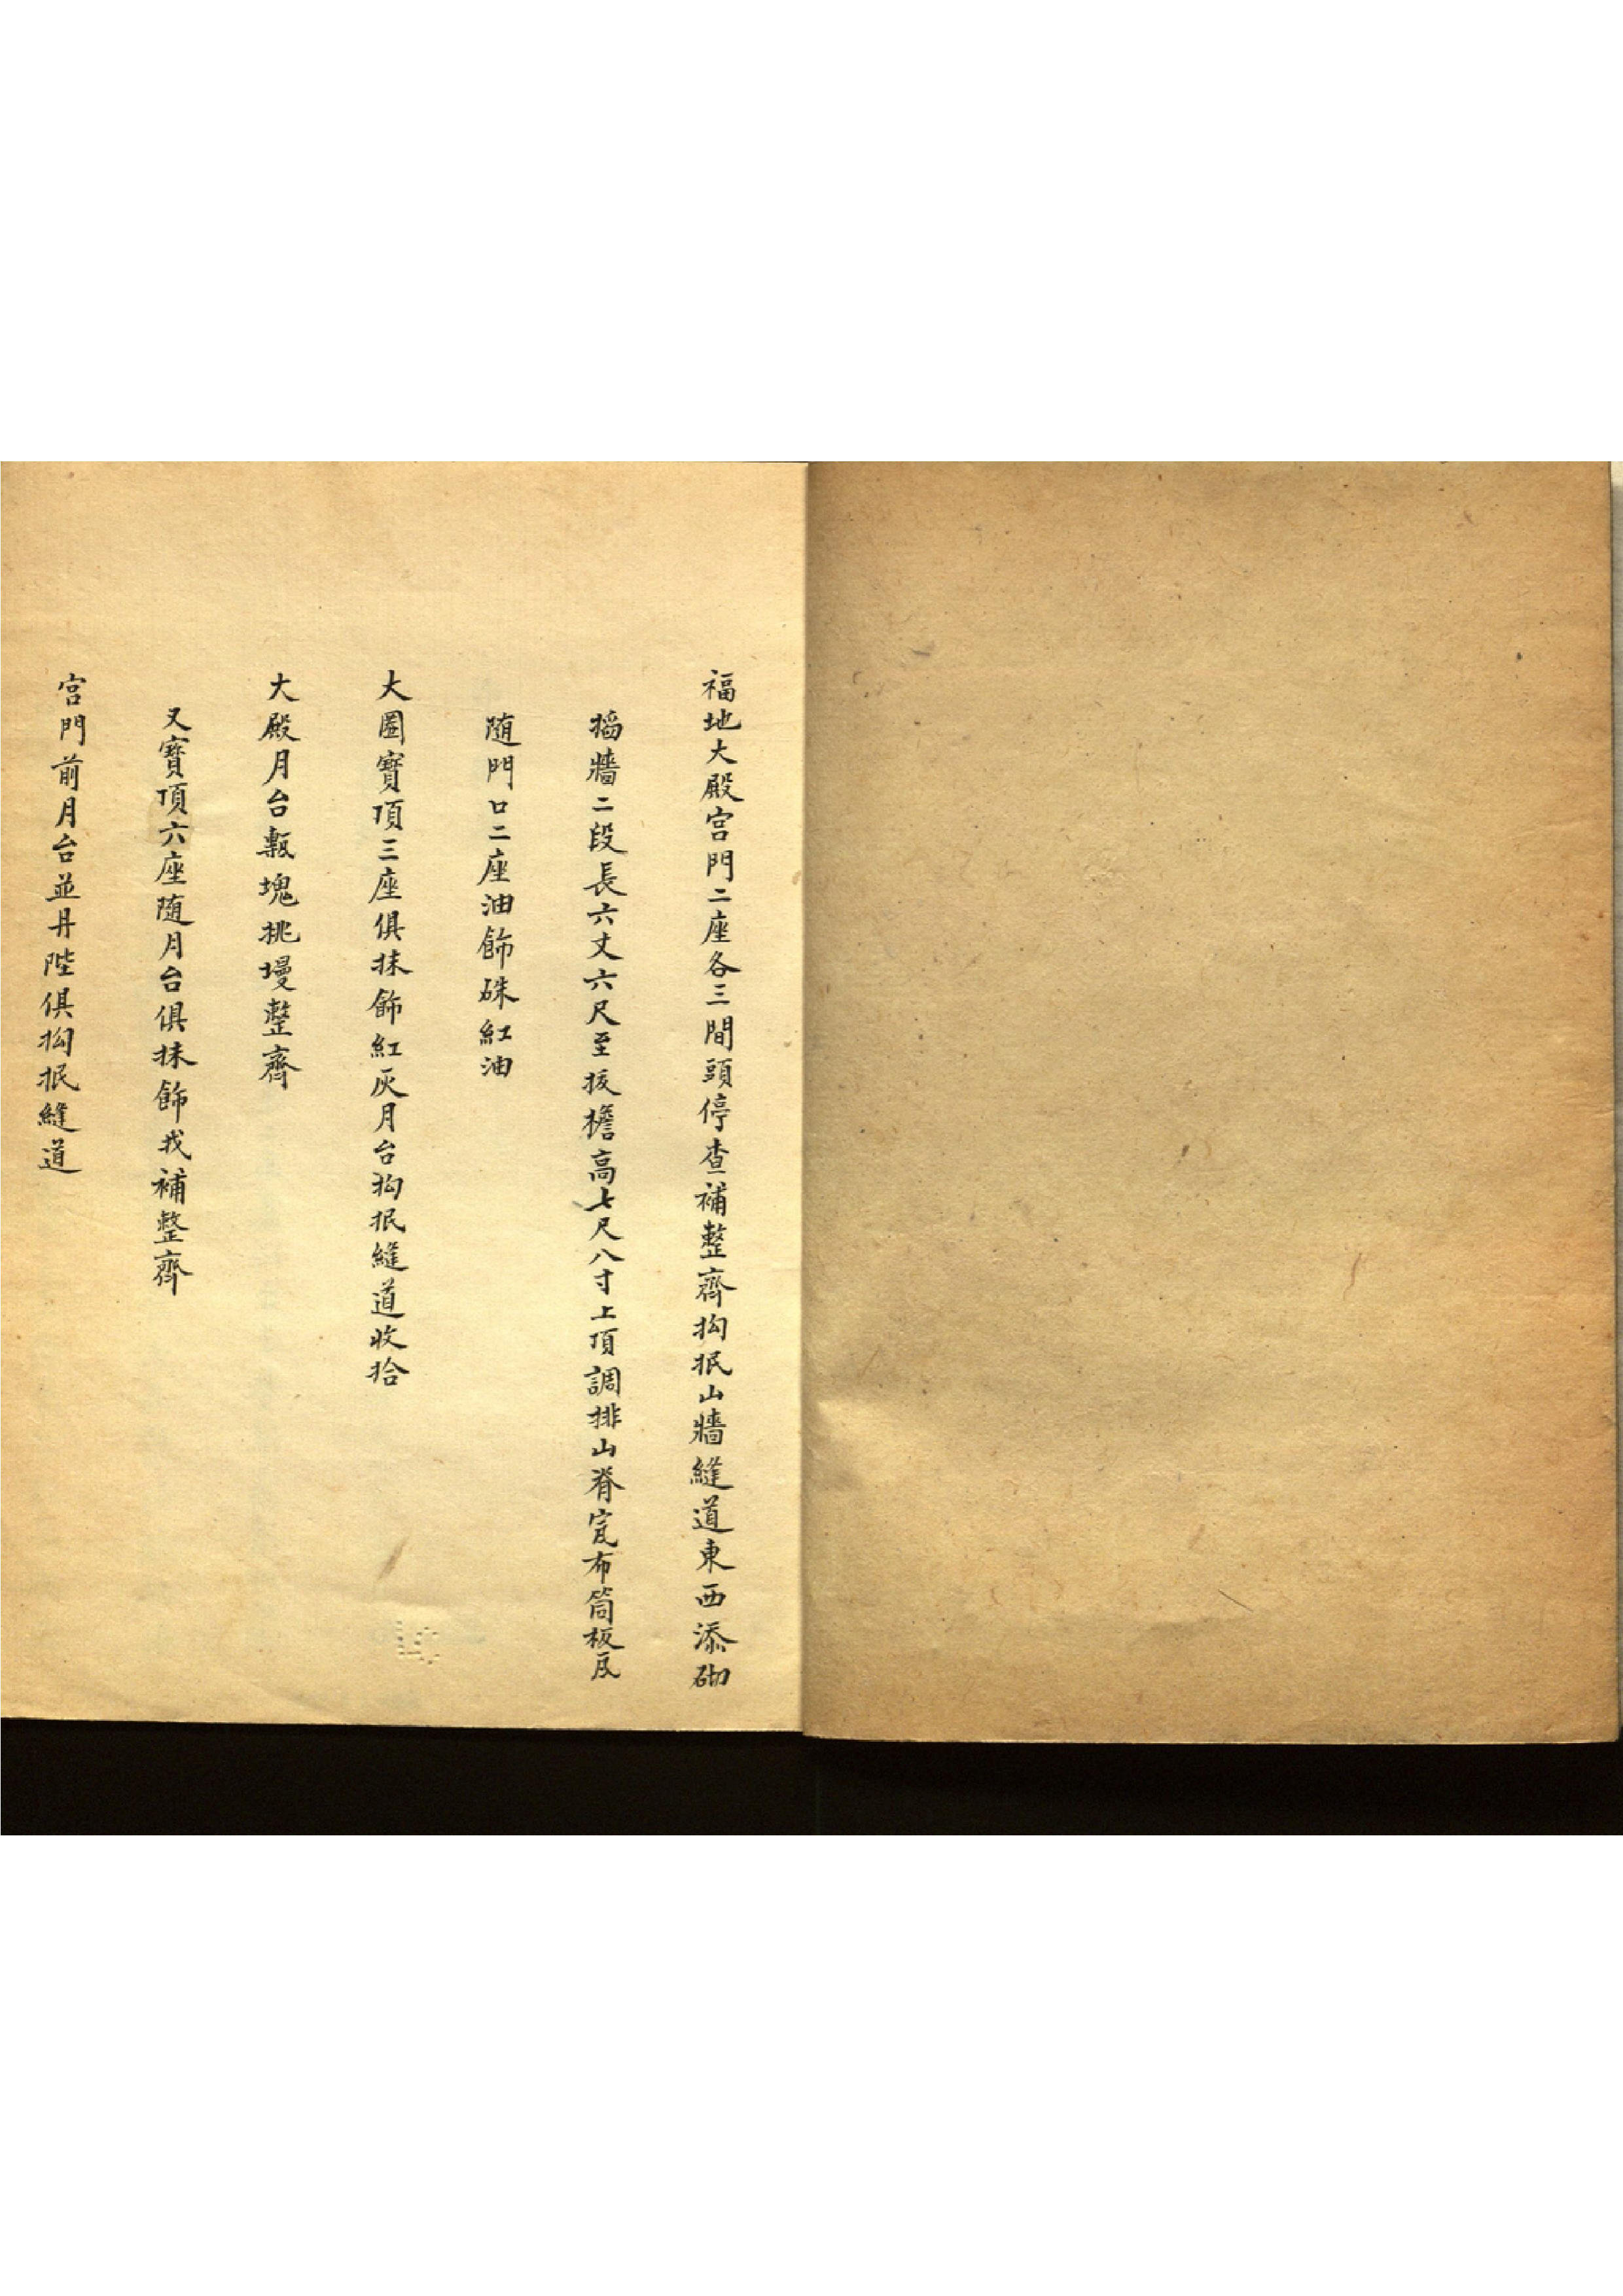 福地大殿宫門二座各三間頭停查補整齊抅抿山牆縫道東西添砌
搯牆二段長六丈六尺至拔檐高七尺八寸上頂調排山脊宽布筒板瓦
随門口二座油飾硃紅油
大圈寳項三座俱抹飾紅灰月台抅抿縫道收拾
大殿月台塊挑墁整齊
又寳頂六座随月台俱抹飾找補整齊
宫門前月台並丹陛俱抅抿縫道
LC